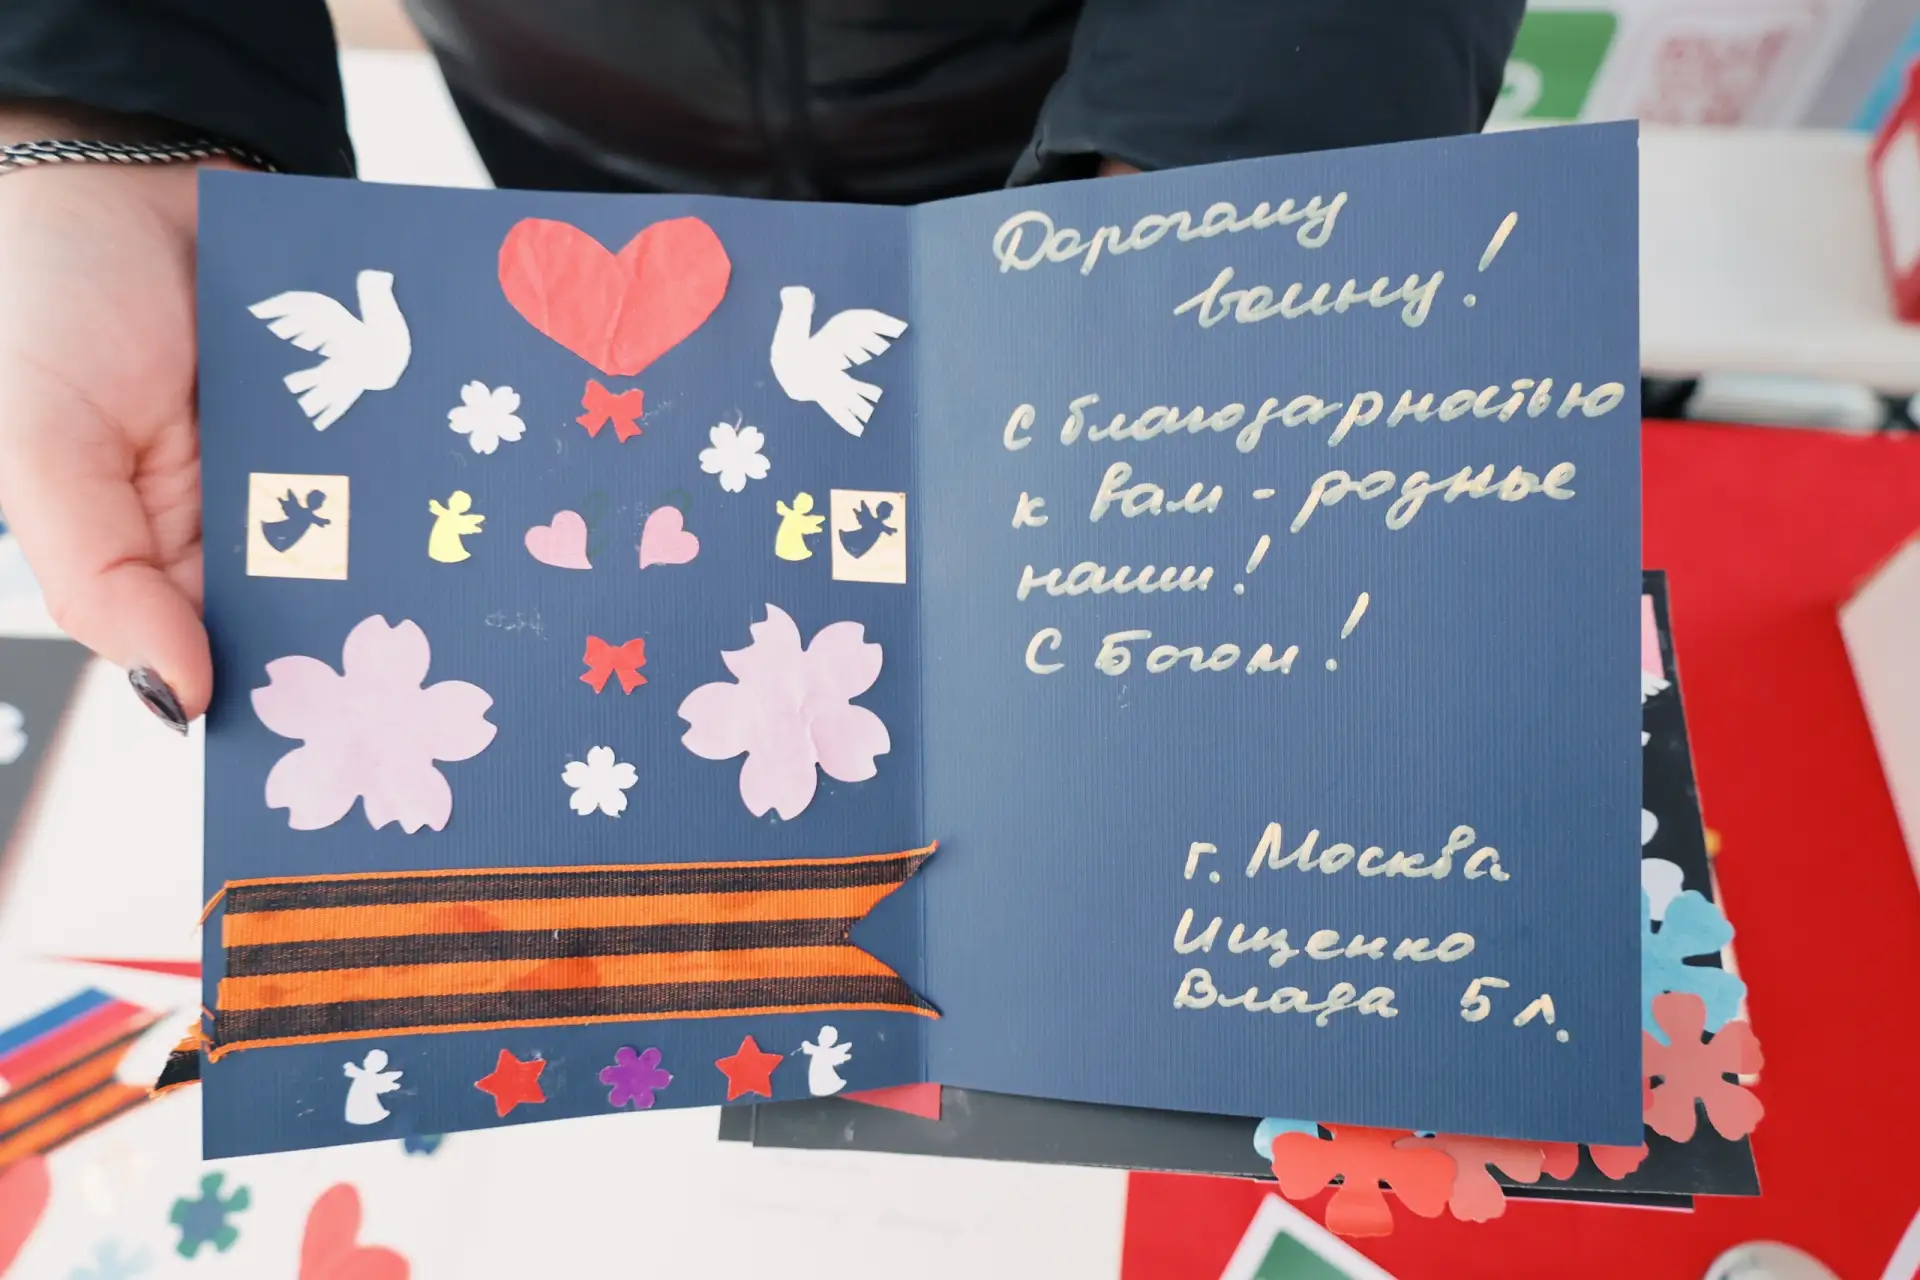 Дорогому
воину!
С благодарностью
к вам - родные
наши!
С Богом!
г. Москва
Ищенко
Влада 5 л.